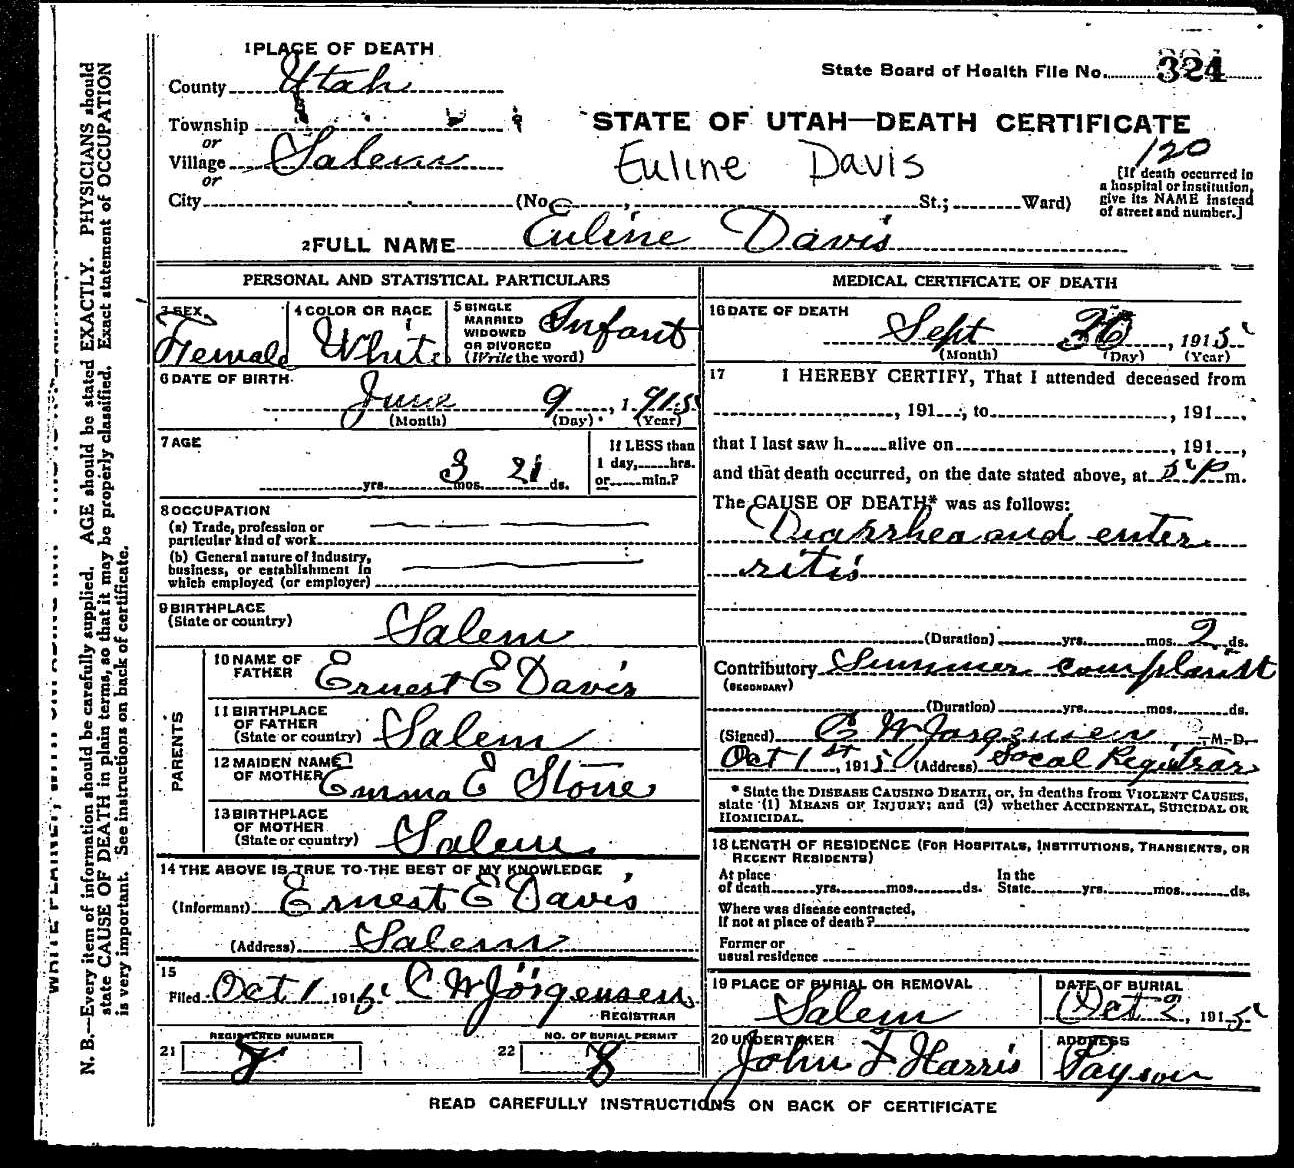 1 PLACE OF DEATH
County Utah
State Board of Health File No. 324
Township
or
Village Salem
or
City
STATE OF UTAH—DEATH CERTIFICATE
Euline Davis
120
(No. St.; Ward)
[If death occurred in
a hospital or institution,
give its NAME instead
of street and number.]
2 FULL NAME Euline Davis
PERSONAL AND STATISTICAL PARTICULARS
3 SEX
Female
4 COLOR OR RACE
White
5 SINGLE
MARRIED
WIDOWED
OR DIVORCED
(Write the word)
Infant
6 DATE OF BIRTH
June 9, 1915
(Month) (Day) (Year)
7 AGE
yrs. 3 mos. 21 ds.
If LESS than
1 day, hrs.
or min.?
8 OCCUPATION
(a) Trade, profession or
particular kind of work
(b) General nature of industry,
business, or establishment in
which employed (or employer)
9 BIRTHPLACE
(State or country)
Salem
PARENTS
10 NAME OF
FATHER
Ernest E Davis
11 BIRTHPLACE
OF FATHER
(State or country)
Salem
12 MAIDEN NAME
OF MOTHER
Emma E Stone
13 BIRTHPLACE
OF MOTHER
(State or country)
Salem
14 THE ABOVE IS TRUE TO THE BEST OF MY KNOWLEDGE
(Informant) Ernest E Davis
(Address) Salem
15
Filed Oct 1 1915 C W Jörgensen
REGISTRAR
REGISTERED NUMBER
21
NO. OF BURIAL PERMIT
22 8
MEDICAL CERTIFICATE OF DEATH
16 DATE OF DEATH
Sept 30, 1915
(Month) (Day) (Year)
17 I HEREBY CERTIFY, That I attended deceased from
, 191 , to , 191 ,
that I last saw h alive on , 191 ,
and that death occurred, on the date stated above, at 5 P m.
The CAUSE OF DEATH* was as follows:
Diarrhea and enter
ritis
(Duration) yrs. mos. 2 ds.
Contributory Summer complaint
(SECONDARY)
(Duration) yrs. mos. ds.
(Signed) C W Jorgensen M.D.
Oct 1st, 1915 (Address) Local Registrar
* State the DISEASE CAUSING DEATH, or, in deaths from VIOLENT CAUSES,
state (1) MEANS OF INJURY; and (2) whether ACCIDENTAL, SUICIDAL OR
HOMICIDAL.
18 LENGTH OF RESIDENCE (FOR HOSPITALS, INSTITUTIONS, TRANSIENTS, OR
RECENT RESIDENTS)
At place
of death yrs. mos. ds.
In the
State yrs. mos. ds.
Where was disease contracted,
If not at place of death?
Former or
usual residence
19 PLACE OF BURIAL OR REMOVAL
Salem
DATE OF BURIAL
Oct 2, 1915
20 UNDERTAKER
John F Harris
ADDRESS
Payson
READ CAREFULLY INSTRUCTIONS ON BACK OF CERTIFICATE
N. B.—Every item of information should be carefully supplied. AGE should be stated EXACTLY. PHYSICIANS should
state CAUSE OF DEATH in plain terms, so that it may be properly classified. Exact statement of OCCUPATION
is very important. See instructions on back of certificate.